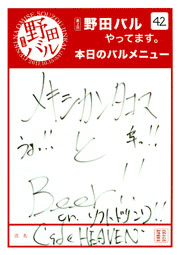 野田バル
野田バル
やってます。
42
本日のバルメニュー
メキシカンタコス
と
Beer!!
or ソフトドリンク!!
店名
Cafe HEAVEN